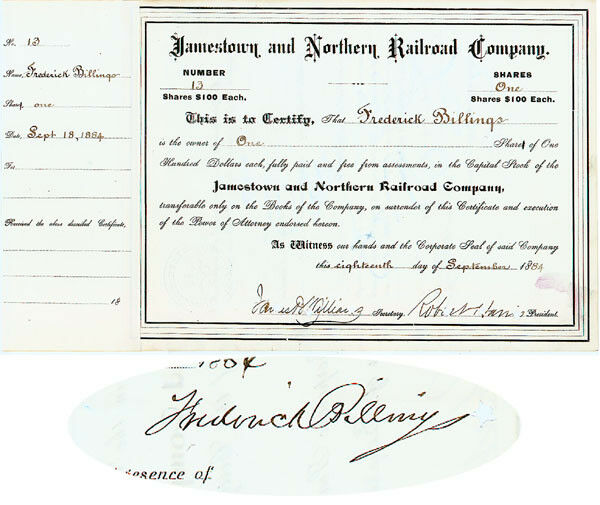 No. 13
Name, Frederick Billings
Shares one
Date, Sept 18, 1884
To
Received the above described Certificate,
18
Jamestown and Northern Railroad Company.
NUMBER
13
Shares $100 Each.
SHARES
One
Shares $100 Each.
This is to Certify, That Frederick Billings
is the owner of One Share of One
Hundred Dollars each, fully paid and free from assessments, in the Capital Stock of the
Jamestown and Northern Railroad Company,
transferable only on the Books of the Company, on surrender of this Certificate and execution
of the Power of Attorney endorsed hereon.
As Witness our hands and the Corporate Seal of said Company
this eighteenth day of September 1884
Secretary. Robert Harris President.
1884
Frederick Billings
resence of